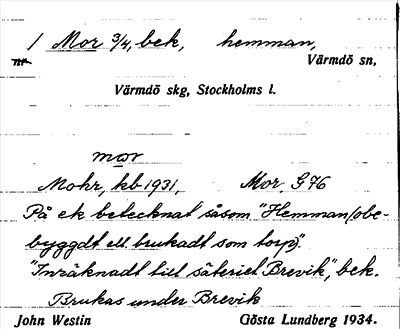 1 Mor 3/4, bek, hemman,
Värmdö sn,
Värmdö skg, Stockholms l.
mor
Mohr, kb 1931, Mor, G76
På ek betecknat såsom "Hemman (obe-
byggdt ell brukadt som torp)".
"Inräknadt till säteriet Brevik", bek.
Brukas under Brevik
John Westin Gösta Lundberg 1934.